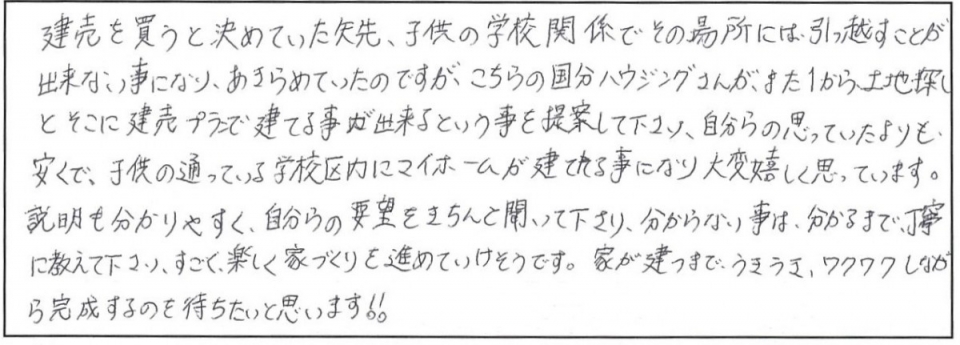 建売を買うと決めていた矢先、子供の学校関係でその場所には引っ越すことが
出来ない事になり、あきらめていたのですが、こちらの国分ハウジングさんが、また1から、土地探し
とそこに建売プランで建てる事が出来るという事を提案して下さり、自分らの思っていたよりも、
安くで、子供の通っている学校区内にマイホームが建てれる事になり大変嬉しく思っています。
説明も分かりやすく、自分らの要望をきちんと聞いて下さり、分からない事は、分かるまで、丁寧
に教えて下さり、すごく、楽しく家づくりを進めていけそうです。家が建つまで、うきうき、ワクワクしなが
ら完成するのを待ちたいと思います!!